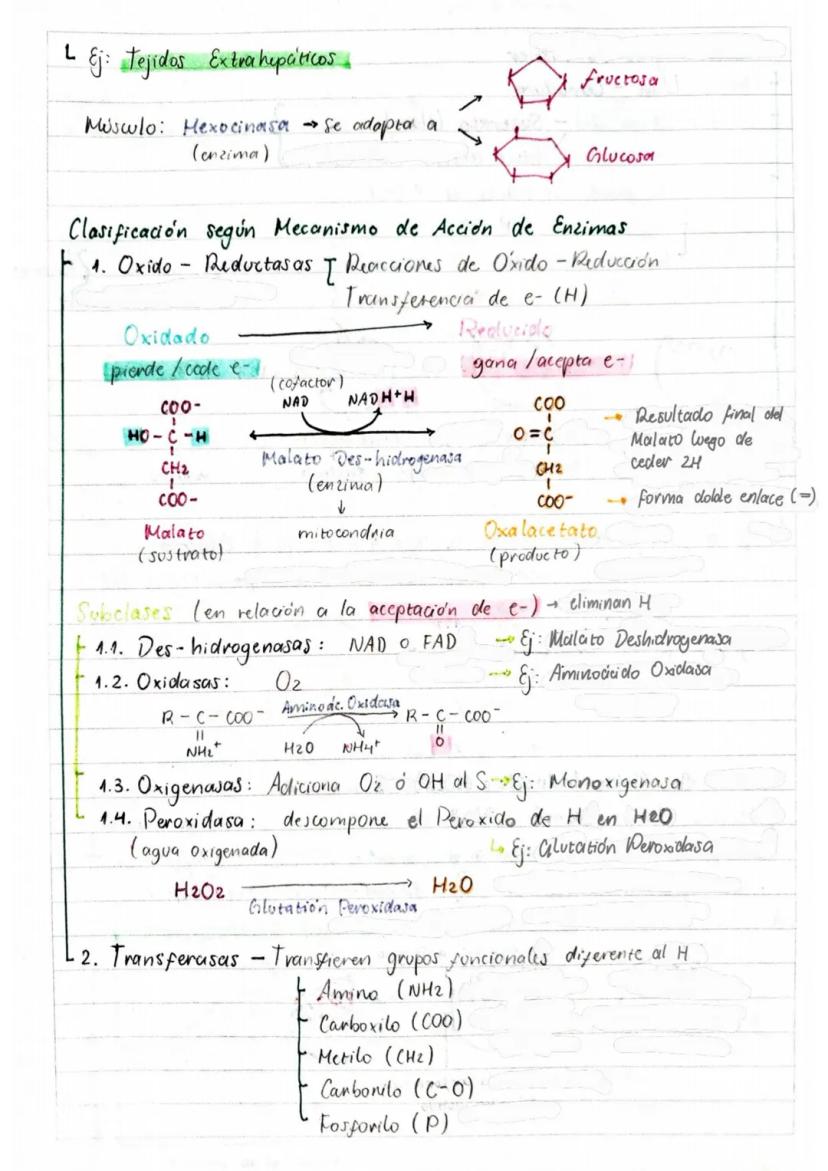 Ej: Tejidos Extrahepáticos
fructosa
Músculo: Hexocinasa → Se adapta a
(enzima)
Glucosa
Clasificación según Mecanismo de Acción de Enzimas
1. Oxido - Reductasas Reacciones de Óxido - Reducción
Transferencia de e- (H)
Oxidado → Reducido
pierde / cede e- gana / acepta e-
(cofactor)
NAD NADH+H
COO-
HO - C - H
CH2
COO-
Malato Des-hidrogenasa
(enzima)
↓
mitocondria
COO
O = C
CH2
COO-
→ Resultado final del
Malato luego de
ceder 2H
→ forma doble enlace (=)
Malato
(sustrato)
Oxalacetato
(producto)
Subclases (en relación a la aceptación de e-) → eliminan H
1.1. Des-hidrogenasas: NAD o FAD → Ej: Malato Deshidrogenasa
1.2. Oxidasas: O2 → Ej: Aminoácido Oxidasa
R - C - COO- Aminoác. Oxidasa R - C - COO-
NH2+ H2O NH4+ O
1.3. Oxigenasas: Adiciona O2 ó OH al S → Ej: Monoxigenasa
1.4. Peroxidasa: descompone el Peroxido de H en H2O
(agua oxigenada) Ej: Glutatión Peroxidasa
H2O2 → H2O
Glutatión Peroxidasa
2. Transferasas - Transfieren grupos funcionales diferente al H
Amino (NH2)
Carboxilo (COO)
Metilo (CH2)
Carbonilo (C-O)
Fosforilo (P)